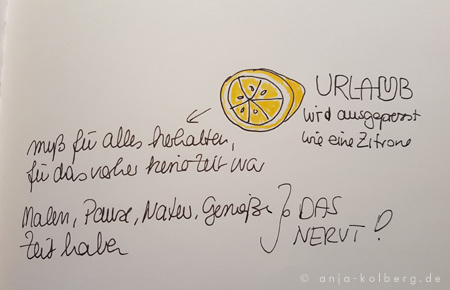 URLAUB
wird ausgepresst
wie eine Zitrone
muß für alles herhalten,
für das vorher keine Zeit war
Malen, Pause, Natur, Genießen
Zeit haben
DAS
NERVT!
© anja-kolberg.de